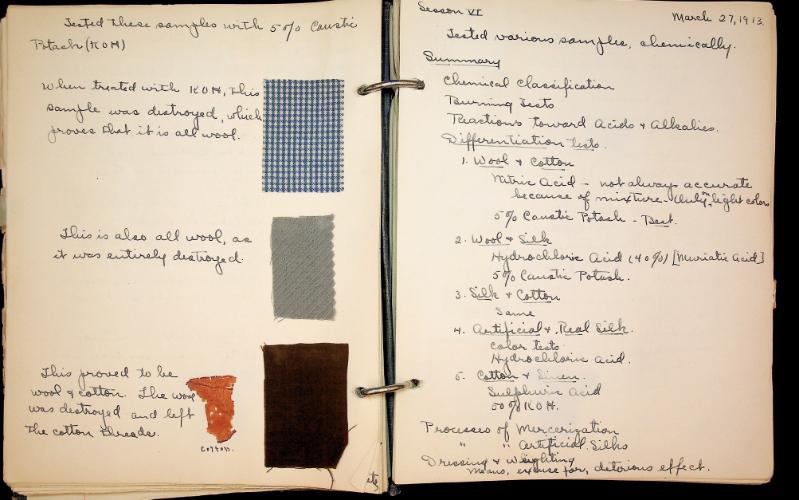 Tested these samples with 5% Caustic
Potash (KOH)
When treated with KOH, this
sample was destroyed, which
proves that it is all wool.
This is also all wool, as
it was entirely destroyed.
This proved to be
wool & cotton. The wool
was destroyed and left
the cotton threads.
Cotton.
Season VI
March 27, 1913.
Tested various samples, chemically.
Summary
Chemical Classification
Burning Tests
Reactions toward Acids & Alkalies.
Differentiation tests.
1. Wool & Cotton
Nitric Acid - not always accurate
because of mixture. Only light colors
5% Caustic Potash - Best.
2. Wool & Silk
Hydrochloric Acid (40%) [Muriatic Acid]
5% Caustic Potash.
3. Silk & Cotton
Same
4. Artificial & Real Silk.
Color tests
Hydrochloric Acid.
5. Cotton & Linen.
Sulphuric Acid
50% KOH.
Processes of Mercerization
" " Artificial Silks
Dressing & Weighting
Means, excuse for, deterious effect.